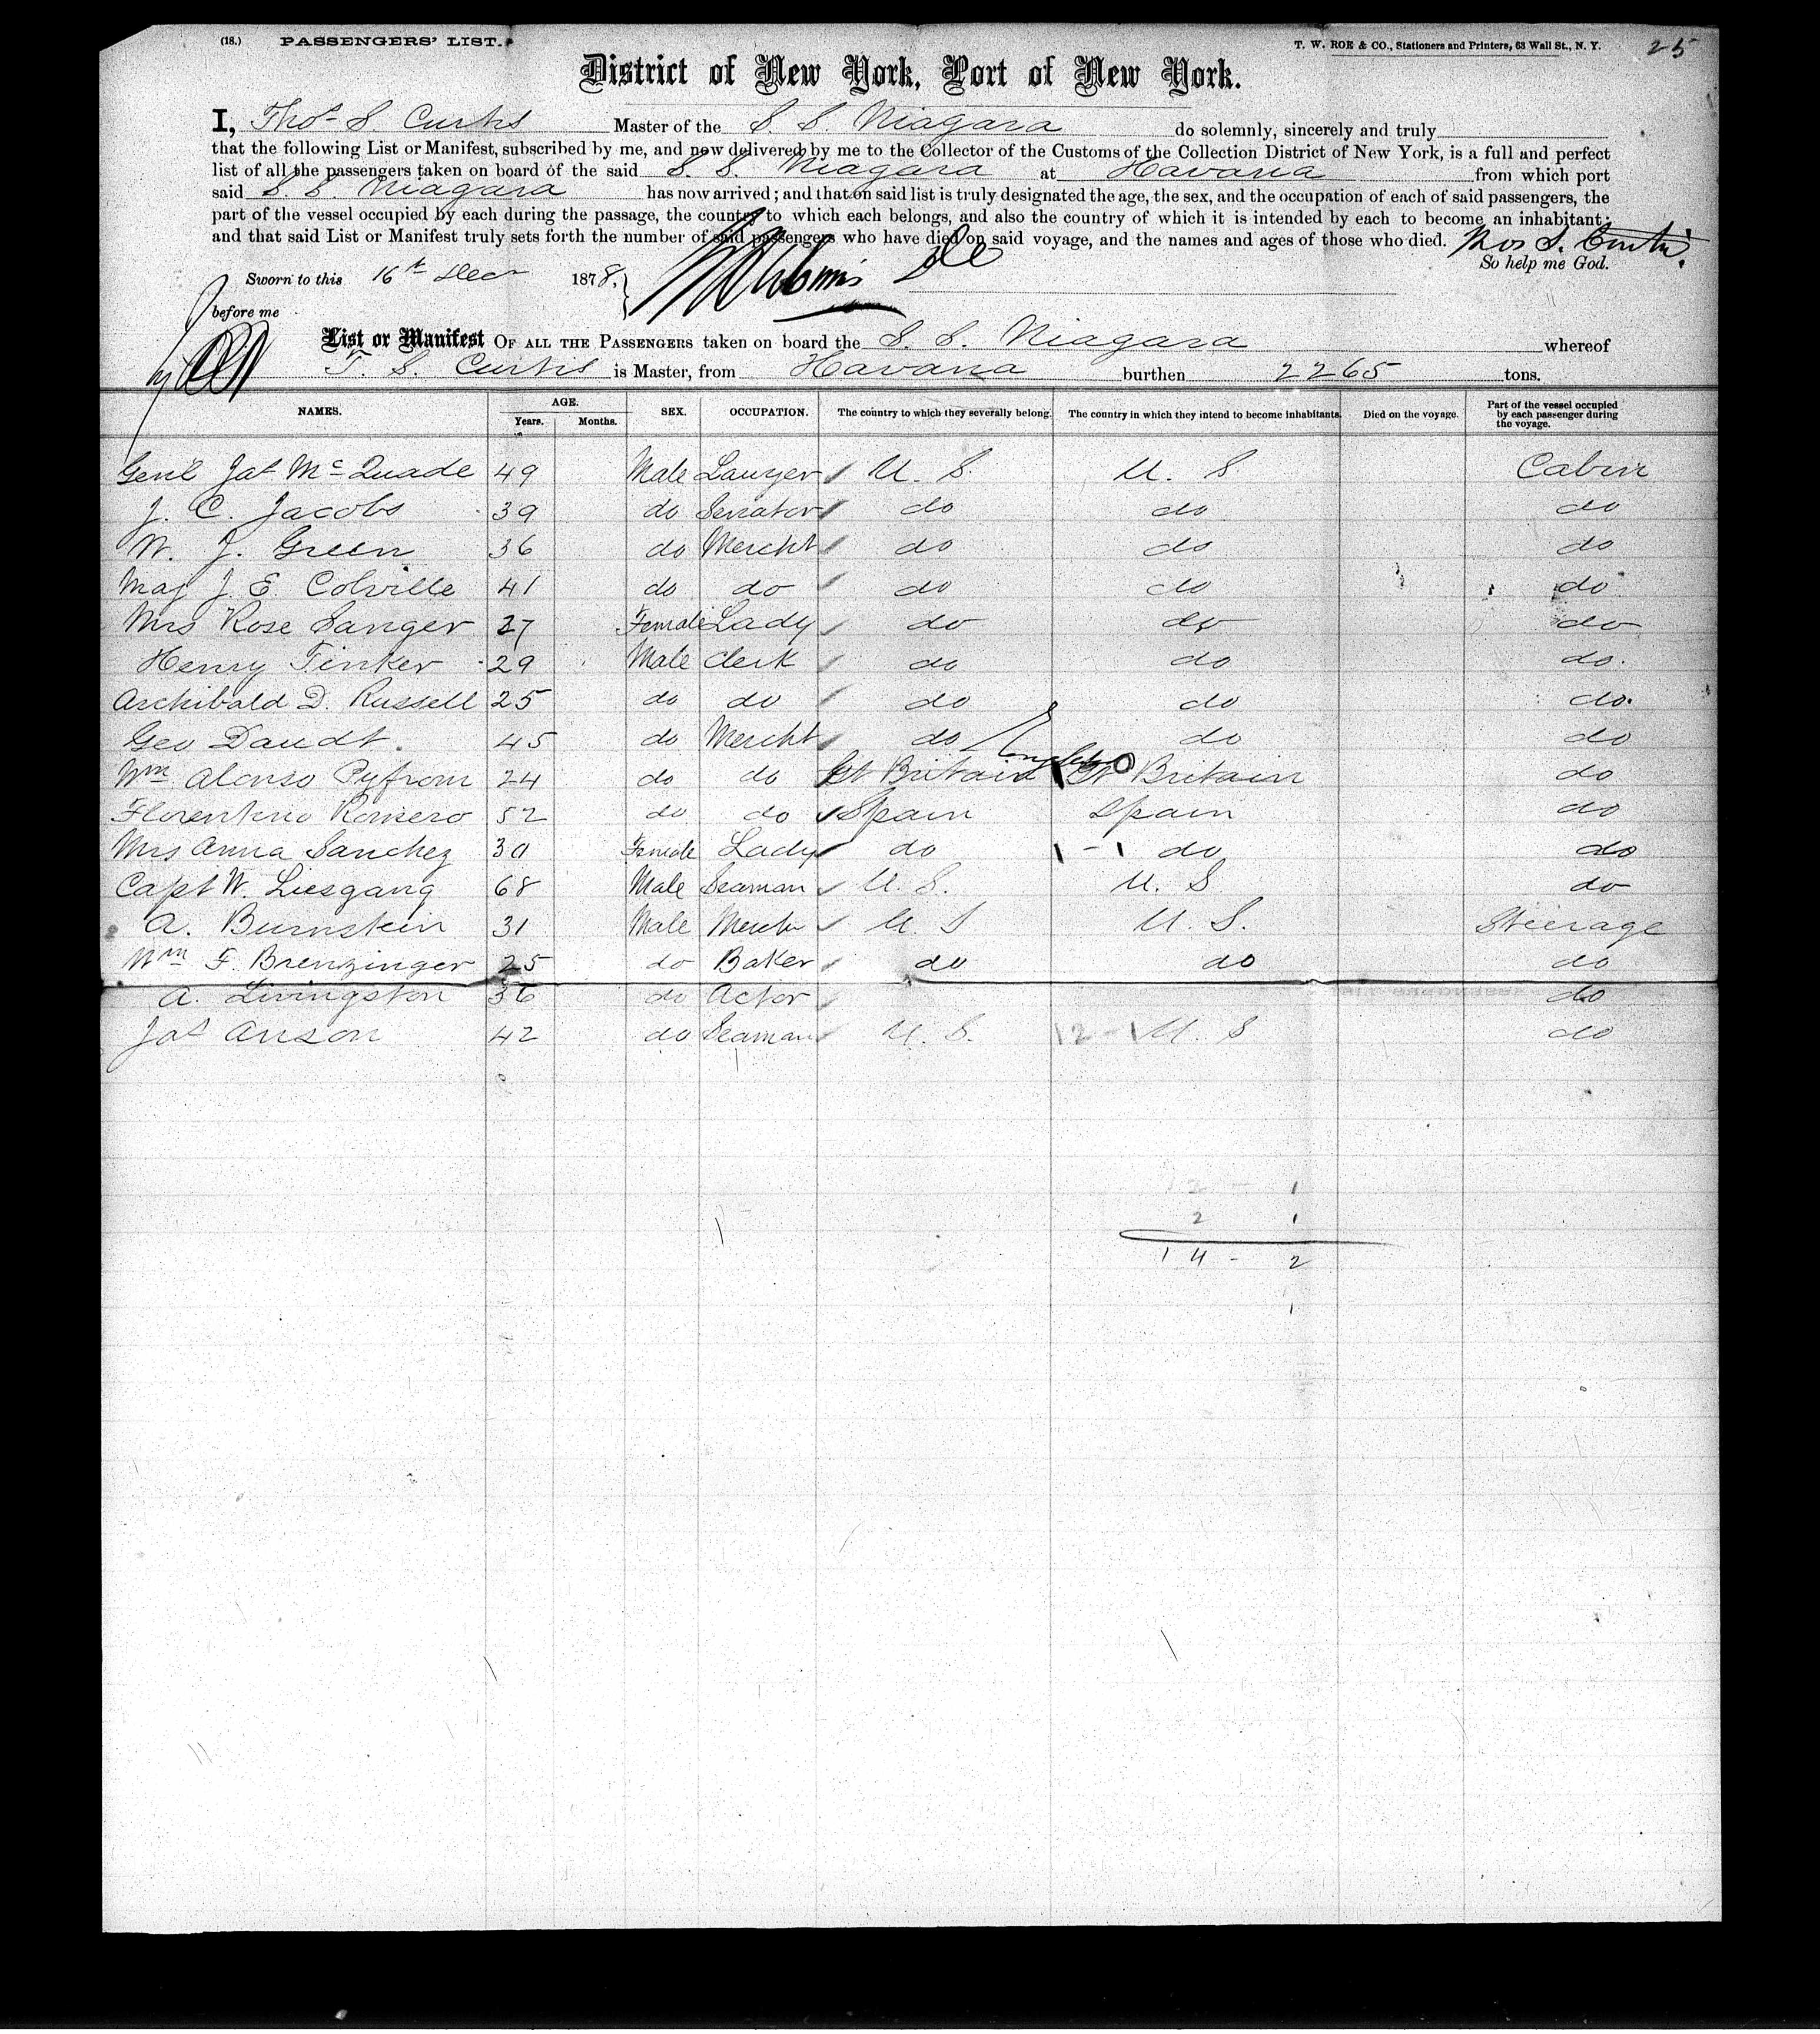 (18.) PASSENGERS' LIST. T. W. ROE & CO., Stationers and Printers, 63 Wall St., N. Y. 25
District of New York, Port of New York.
I, Thos S. Curtis Master of the S. S. Niagara do solemnly, sincerely and truly
that the following List or Manifest, subscribed by me, and now delivered by me to the Collector of the Customs of the Collection District of New York, is a full and perfect
list of all the passengers taken on board of the said S. S. Niagara at Havana from which port
said S. S. Niagara has now arrived; and that on said list is truly designated the age, the sex, and the occupation of each of said passengers, the
part of the vessel occupied by each during the passage, the country to which each belongs, and also the country of which it is intended by each to become an inhabitant;
and that said List or Manifest truly sets forth the number of said passengers who have died on said voyage, and the names and ages of those who died. Thos S. Curtis.
So help me God.
Sworn to this 16th Decr 1878.
before me
List or Manifest OF ALL THE PASSENGERS taken on board the S. S. Niagara whereof
T. S. Curtis is Master, from Havana burthen 2265 tons.
NAMES. AGE. Years. Months. SEX. OCCUPATION. The country to which they severally belong. The country in which they intend to become inhabitants. Died on the voyage. Part of the vessel occupied by each passenger during the voyage.
Genl Jas McQuade 49 Male Lawyer U. S. U. S Cabin
J. C. Jacobs 39 do Senator do do do
W. J. Green 36 do Mercht do do do
Maj J. E. Colville 41 do do do do do
Mrs Rose Sanger 27 Female Lady do do do
Henry Tinker 29 Male Clerk do do do.
Archibald D. Russell 25 do do do do do.
Geo Daudt. 45 do Mercht do do do
Wm Alonso Pyfrom 24 do do Gt Britain Gt Britain do
Florentino Romero 52 do do Spain Spain do
Mrs Anna Sanchez 30 Female Lady do 1 - 1 do do
Capt W. Liesgang 68 Male Seaman U. S. U. S. do
A. Burnstein 31 Male Mercht U. S U. S. Steerage
Wm F. Brenzinger 25 do Baker do do do
A. Livingston 36 do Actor do
Jas Anson 42 do Seaman U. S. 12 - 1 U. S do
2 1
14 - 2
1